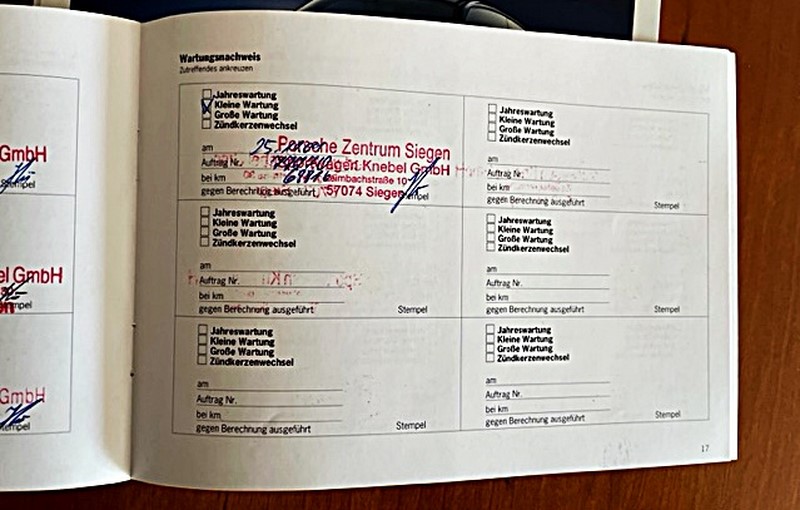 GmbH
Stempel
el GmbH
Stempel
GmbH
Stempel
Wartungsnachweis
Zutreffendes ankreuzen
Jahreswartung
Kleine Wartung
Große Wartung
Zündkerzenwechsel
am 25.
Porsche Zentrum Siegen
Auftrag Nr.
Knebel GmbH
bei km
57074 Siegen
gegen Berechnung ausgeführt
Stempel
Jahreswartung
Kleine Wartung
Große Wartung
Zündkerzenwechsel
am
Auftrag Nr.
bei km
gegen Berechnung ausgeführt
Stempel
Jahreswartung
Kleine Wartung
Große Wartung
Zündkerzenwechsel
am
Auftrag Nr.
bei km
gegen Berechnung ausgeführt
Stempel
Jahreswartung
Kleine Wartung
Große Wartung
Zündkerzenwechsel
am
Auftrag Nr.
bei km
gegen Berechnung ausgeführt
Stempel
Jahreswartung
Kleine Wartung
Große Wartung
Zündkerzenwechsel
am
Auftrag Nr.
bei km
gegen Berechnung ausgeführt
Stempel
Jahreswartung
Kleine Wartung
Große Wartung
Zündkerzenwechsel
am
Auftrag Nr.
bei km
gegen Berechnung ausgeführt
Stempel
17